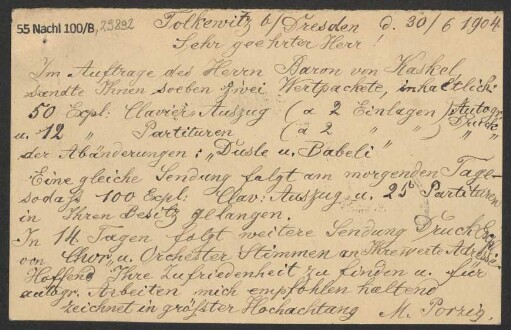 55 Nachl 100/B, 25892
Tolkewitz b/Dresden d. 30/6 1904
Sehr geehrter Herr!
Im Auftrage des Herrn Baron von Kaskel,
sandte Ihnen soeben zwei Wertpackete, inhaltlich:
50 Expl: Clavier-Auszug (a 2 Einlagen) Autogr.
u. 12 " Partituren (a 2 " ) Drucke
der Abänderungen: "Dusle u. Babeli"
Eine gleiche Sendung folgt am morgenden Tage
sodaß 100 Expl: Clav: Auszug u. 25 Partituren
in Ihren Besitz gelangen.
In 14 Tagen folgt weitere Sendung
von Chor u. Orchester Stimmen an Ihre werte Adresse
Hoffend Ihre Zufriedenheit zu finden u. für
autogr. Arbeiten mich empfohlen haltend
zeichnet in größter Hochachtung M. Porzig.